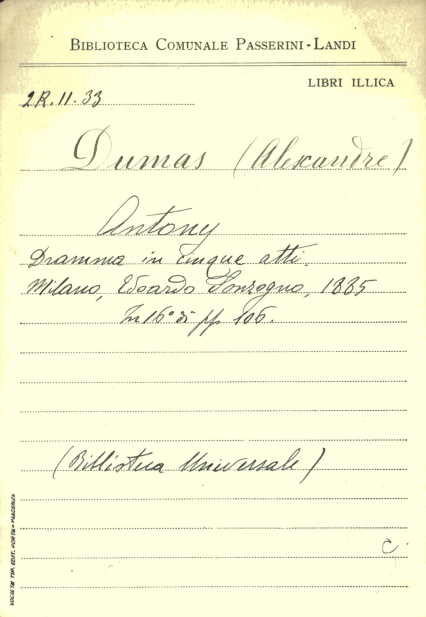 BIBLIOTECA COMUNALE PASSERINI-LANDI
LIBRI ILLICA
2R.II.33
Dumas (Alexandre)
Antony
Dramma in cinque atti.
Milano, Edoardo Sonzogno, 1885
In 16° di pp 106.
(Biblioteca Universale)
C.
SOCIETÀ TIP. EDIT. PORTA - PIACENZA